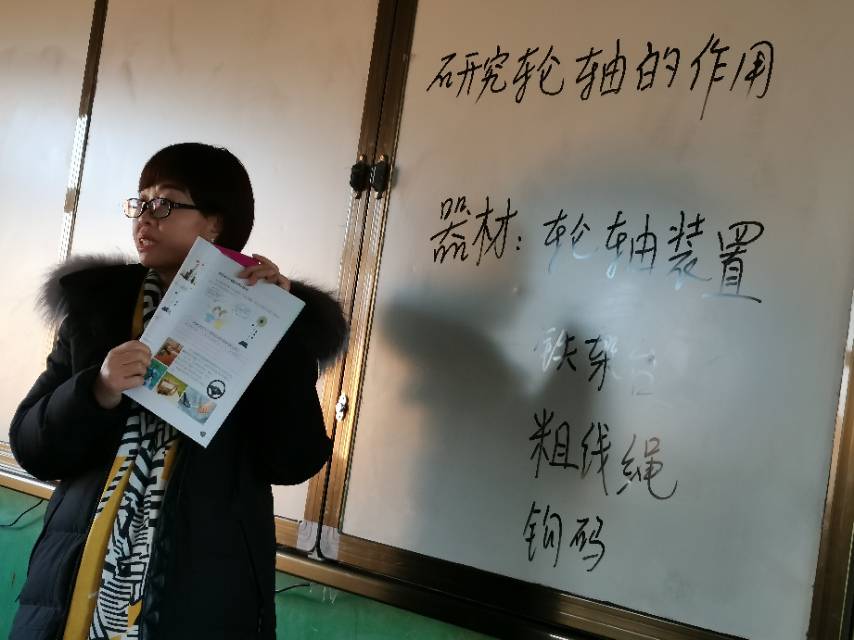 研究轮轴的作用
器材：轮轴装置
铁架台
粗线绳
钩码